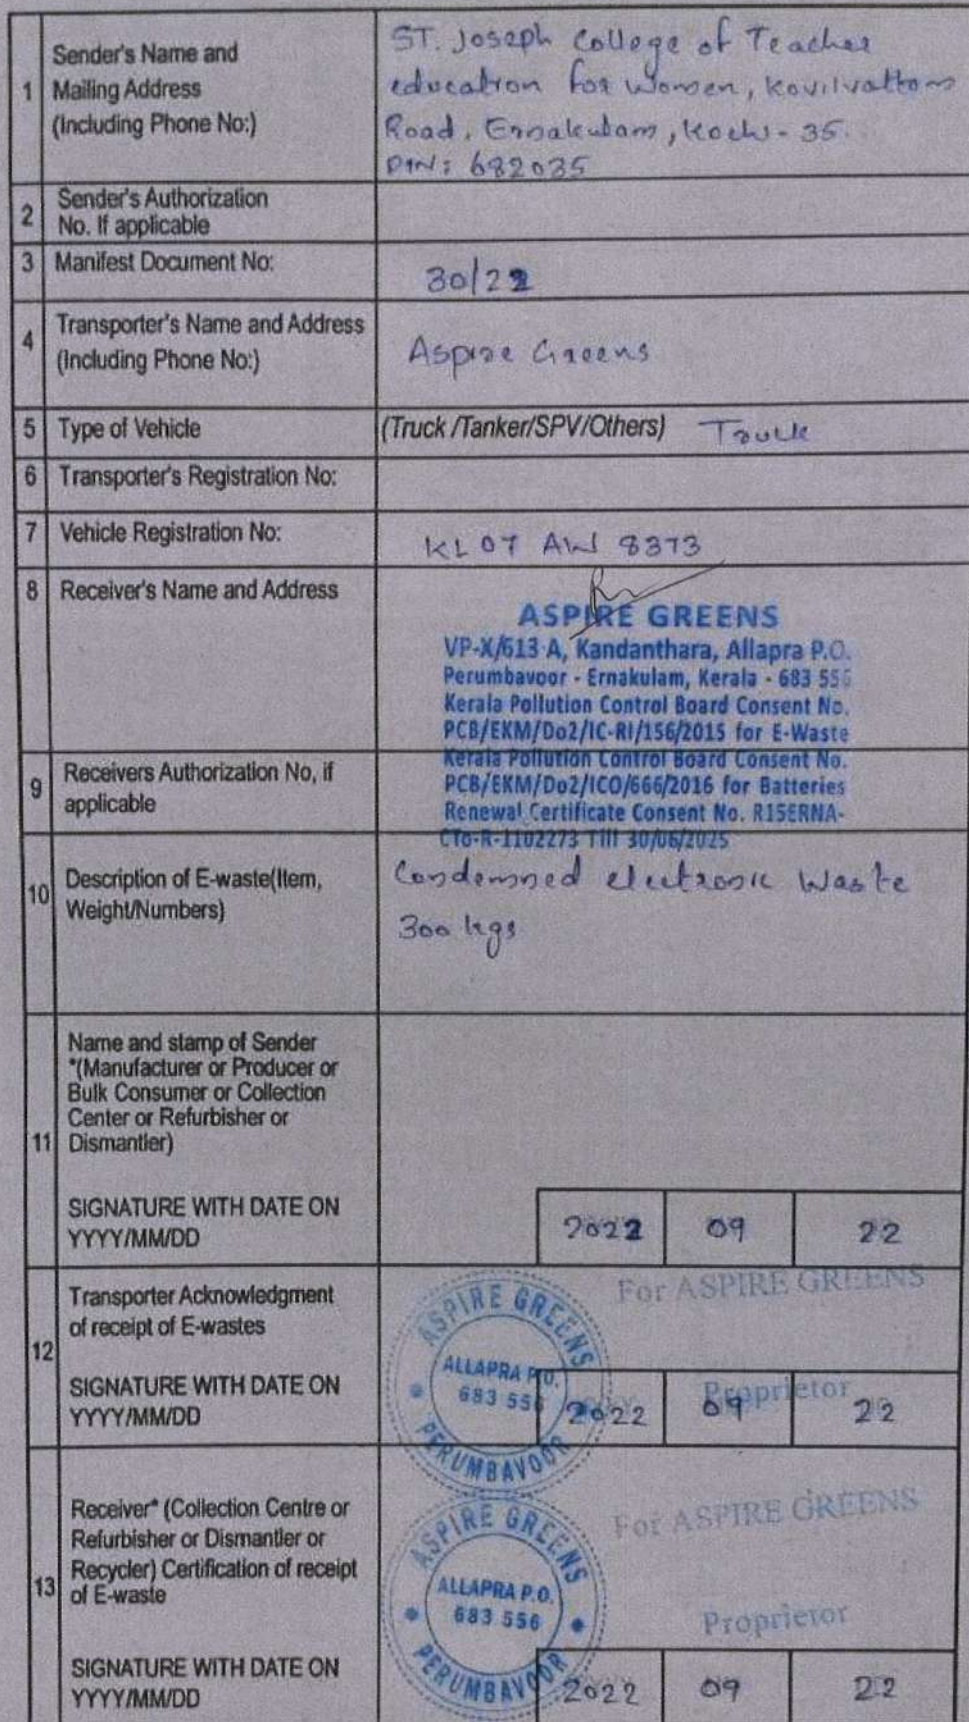 1
Sender's Name and
Mailing Address
(Including Phone No:)
ST. Joseph College of Teacher
education for Women, Kovilvattom
Road, Ernakulam, Kochi - 35.
PIN: 682035
2
Sender's Authorization
No. If applicable
3
Manifest Document No:
30/22
4
Transporter's Name and Address
(Including Phone No:)
Aspire Greens
5
Type of Vehicle
(Truck /Tanker/SPV/Others) Truck
6
Transporter's Registration No:
7
Vehicle Registration No:
KL 07 AW 8373
8
Receiver's Name and Address
ASPIRE GREENS
VP-X/613 A, Kandanthara, Allapra P.O.
Perumbavoor - Ernakulam, Kerala - 683 556
Kerala Pollution Control Board Consent No.
PCB/EKM/Do2/IC-RI/156/2015 for E-Waste
Kerala Pollution Control Board Consent No.
PCB/EKM/Do2/ICO/666/2016 for Batteries
Renewal Certificate Consent No. R15ERNA-
CTo-R-1102273 Till 30/06/2025
9
Receivers Authorization No, if
applicable
10
Description of E-waste(Item,
Weight/Numbers)
Condemned electronic Waste
300 kgs
11
Name and stamp of Sender
*(Manufacturer or Producer or
Bulk Consumer or Collection
Center or Refurbisher or
Dismantler)
SIGNATURE WITH DATE ON
YYYY/MM/DD
2022 09 22
12
Transporter Acknowledgment
of receipt of E-wastes
SIGNATURE WITH DATE ON
YYYY/MM/DD
For ASPIRE GREENS
Proprietor
ASPIRE GREENS
ALLAPRA P.O.
683 556
PERUMBAVOOR
2022 09 22
13
Receiver* (Collection Centre or
Refurbisher or Dismantler or
Recycler) Certification of receipt
of E-waste
SIGNATURE WITH DATE ON
YYYY/MM/DD
For ASPIRE GREENS
Proprietor
ASPIRE GREENS
ALLAPRA P.O.
683 556
PERUMBAVOOR
2022 09 22